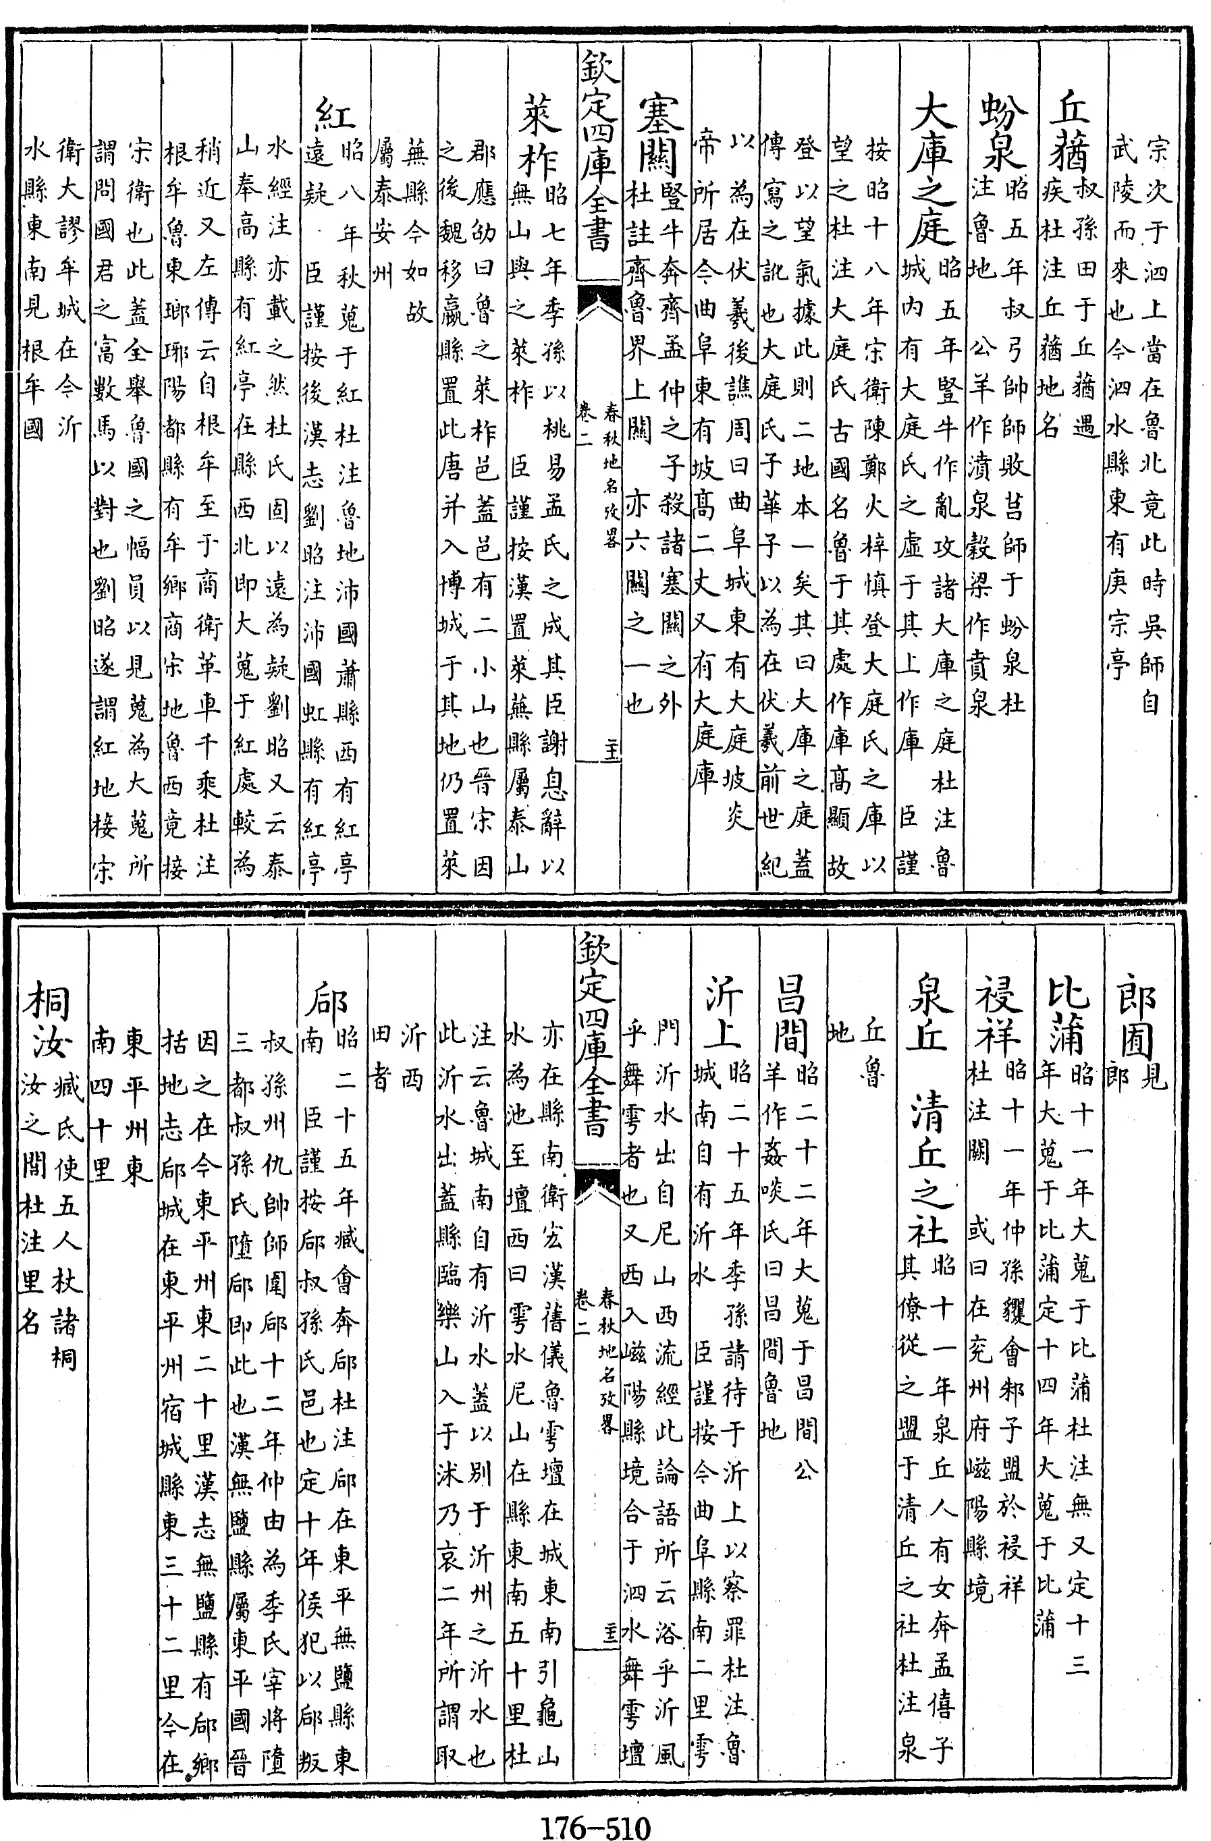 宗次于泗上當在魯北竟此時吳師自
武陵而來也今泗水縣東有庚宗亭
丘蕕
叔孫田于丘蕕遇
疾杜注丘蕕地名
蚡泉
昭五年叔弓帥師敗莒師于蚡泉杜
注魯地 公羊作濆泉穀梁作賁泉
大庫之庭
昭五年豎牛作亂攻諸大庫之庭杜注魯
城內有大庭氏之虛于其上作庫 臣謹
按昭十八年宋衛陳鄭火梓慎登大庭氏之庫以
望之杜注大庭氏古國名魯于其處作庫高顯故
登以望氣據此則二地本一矣其曰大庫之庭蓋
傳寫之訛也大庭氏子華子以為在伏羲前世紀
以為在伏羲後譙周曰曲阜城東有大庭坡炎
帝所居今曲阜東有坡高二丈又有大庭庫
塞關
豎牛奔齊孟仲之子殺諸塞關之外
杜註齊魯界上關 亦六關之一也
欽定四庫全書
春秋地名攷畧
卷二
二十五
萊柞
昭七年季孫以桃易孟氏之成其臣謝息辭以
無山與之萊柞 臣謹按漢置萊蕪縣屬泰山
郡應劭曰魯之萊柞邑蓋邑有二小山也晉宋因
之後魏移嬴縣置此唐并入博城于其地仍置萊
蕪縣今如故
屬泰安州
紅
昭八年秋蒐于紅杜注魯地沛國蕭縣西有紅亭
遠疑 臣謹按後漢志劉昭注沛國虹縣有紅亭
水經注亦載之然杜氏固以遠為疑劉昭又云泰
山奉高縣有紅亭在縣西北即大蒐于紅處較為
稍近又左傳云自根牟至于商衛革車千乘杜注
根牟魯東瑯琊陽都縣有牟鄉商宋地魯西竟接
宋衛也此蓋全舉魯國之幅員以見蒐為大蒐所
謂問國君之富數馬以對也劉昭遂謂紅地接宋
衛大謬牟城在今沂
水縣東南見根牟國
郎囿
見
郎
比蒲
昭十一年大蒐于比蒲杜注無又定十三
年大蒐于比蒲定十四年大蒐于比蒲
祲祥
昭十一年仲孫貜會邾子盟於祲祥
杜注闕 或曰在兖州府嵫陽縣境
泉丘 清丘之社
昭十一年泉丘人有女奔孟僖子
其僚從之盟于清丘之社杜注泉
丘魯
地
昌間
昭二十二年大蒐于昌間公
羊作姦啖氏曰昌間魯地
沂上
昭二十五年季孫請待于沂上以察罪杜注魯
城南自有沂水 臣謹按今曲阜縣南二里雩
門沂水出自尼山西流經此論語所云浴乎沂風
乎舞雩者也又西入嵫陽縣境合于泗水舞雩壇
欽定四庫全書
春秋地名攷畧
卷二
亦在縣南衛宏漢舊儀魯雩壇在城東南引龜山
水為池至壇西曰雩水尼山在縣東南五十里杜
注云魯城南自有沂水蓋以别于沂州之沂水也
此沂水出蓋縣臨樂山入于沭乃哀二年所謂取
沂西
田者
郈
昭二十五年臧會奔郈杜注郈在東平無鹽縣東
南 臣謹按郈叔孫氏邑也定十年侯犯以郈叛
叔孫州仇帥師圍郈十二年仲由為季氏宰將墮
三都叔孫氏墮郈即此也漢無鹽縣屬東平國晉
因之在今東平州東二十里漢志無鹽縣有郈鄉
括地志郈城在東平州宿城縣東三十二里今在
東平州東
南四十里
桐汝
臧氏使五人杖諸桐
汝之閭杜注里名
176-510